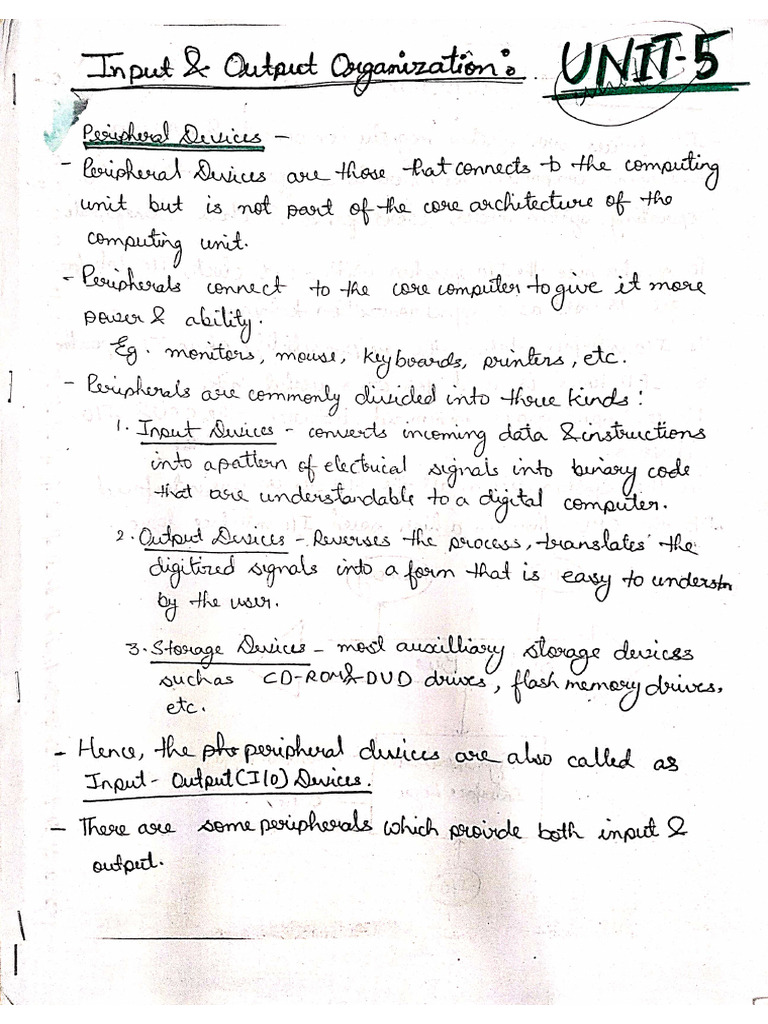 Input & Output Organization: UNIT-5
Peripheral Devices -
- Peripheral Devices are those that connects to the computing
unit but is not part of the core architecture of the
computing unit.
- Peripherals connect to the core computer to give it more
power & ability.
Eg. monitors, mouse, keyboards, printers, etc.
- Peripherals are commonly divided into three kinds:
1. Input Devices - converts incoming data & instructions
into a pattern of electrical signals into binary code
that are understandable to a digital computer.
2. Output Devices - Reverses the process, translates the
digitized signals into a form that is easy to
by the user.
3. Storage Devices - most auxilliary storage devices
such as CD-ROM & DVD drives, flash memory drives,
etc.
- Hence, the peripheral devices are also called as
Input-Output (I/O) Devices.
- There are some peripherals which provide both input &
output.